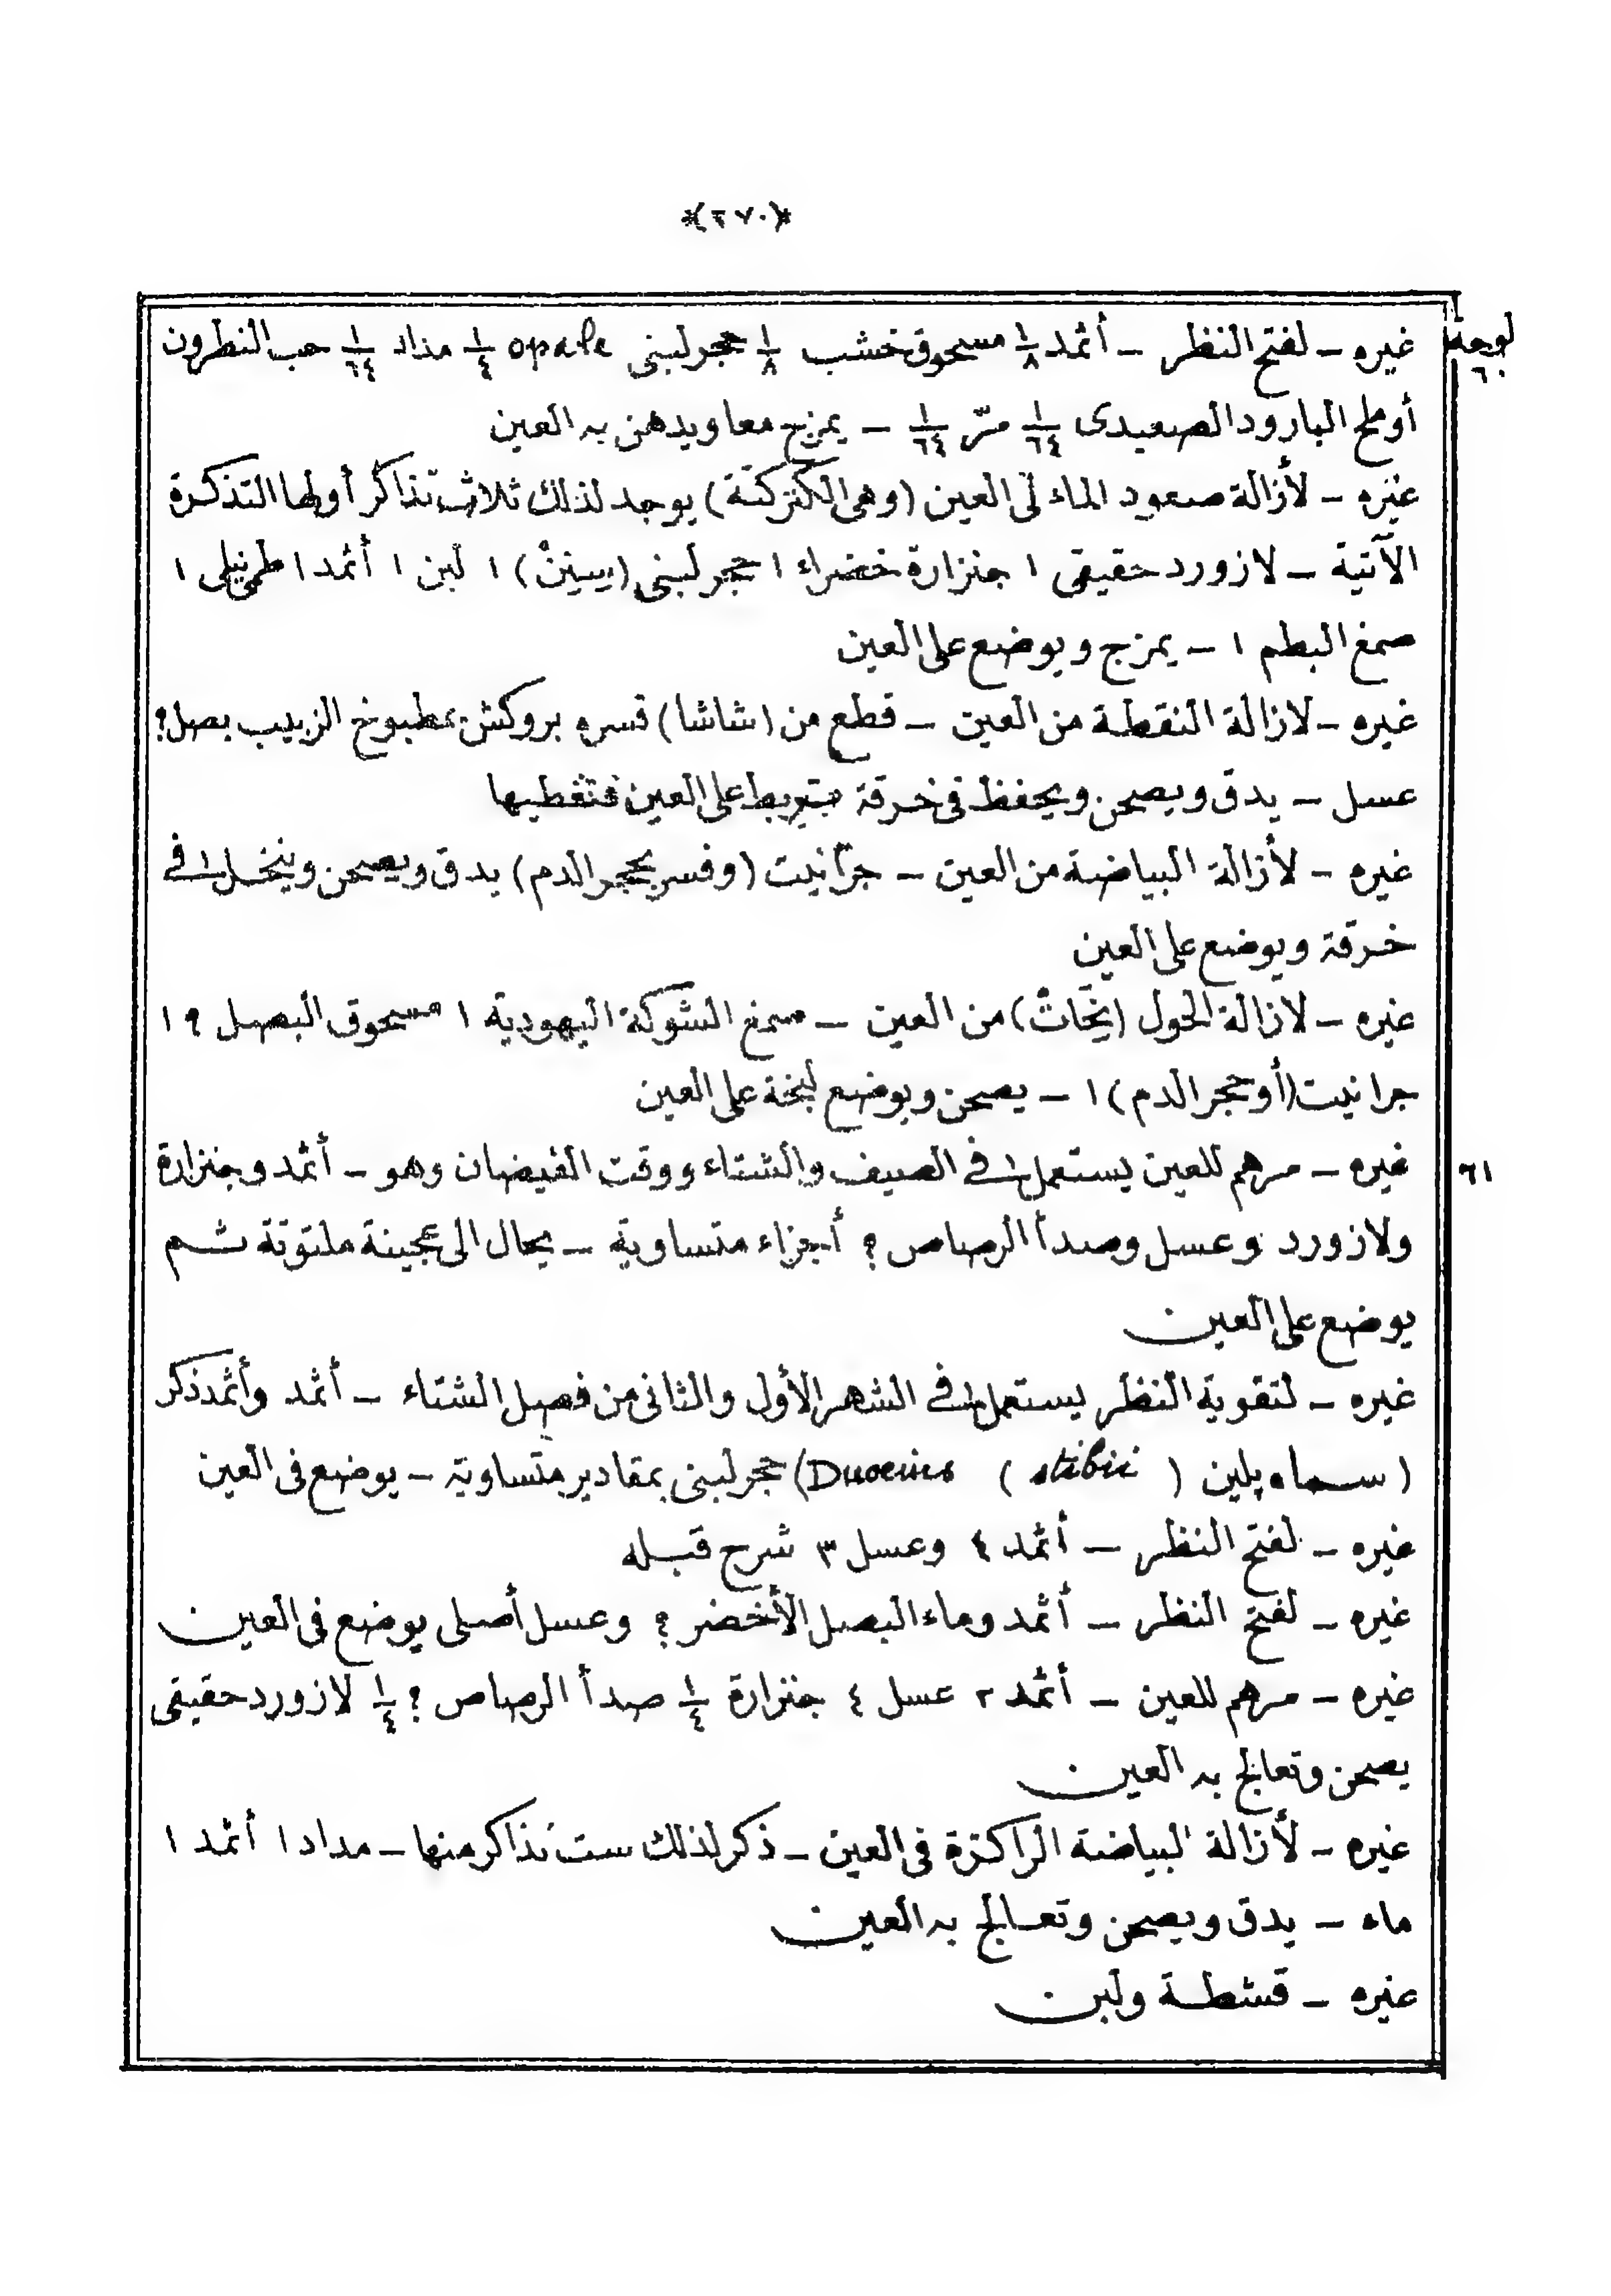 *(٢٧٠)*
لوحة ٦٠
غيره - لفتح النظر - أثمد ١/٨ مسحوق خشب ١/٨ حجر لبنى opale ١/٤ مداد ١/٦٤ حب النطرون
أو ملح البارود الصعيدى ١/٦٤ مرّ ١/٦٤ - يمزج معا ويدهن به العين
غيره - لأزالة صعود الماء لى العين (وهى الكتركتة) يوجد لذلك ثلاث تذاكر أولها التذكرة
الآتية - لازورد حقيقى ١ جنزارة خضراء ١ حجر لبنى (سينن) ١ لبن ١ أثمد ١ طمى نيلى ١
صمغ البطم ١ - يمزج ويوضع على العين
غيره - لازالة النقطة من العين - قطع من (شاشا) فسره بروكش بمطبوخ الزبيب بصل؟
عسل - يدق ويصحن ويحفظ فى خرقة يتربط على العين فتغطيها
غيره - لأزالة البياضة من العين - جرانيت (وفسر بحجر الدم) يدق ويصحن وينخل فى
خرقة ويوضع على العين
غيره - لازالة الحول (يخاث) من العين - صمغ الشوكة اليهودية ١ مسحوق البصل ؟ ١
جرانيت (أو حجر الدم) ١ - يصحن ويوضع لبخة على العين
٦١
غيره - مرهم للعين يستعمل فى الصيف والشتاء ووقت الفيضان وهو - أثمد وجنزارة
ولازورد وعسل وصدأ الرصاص ؟ أجزاء متساوية - يحال الى عجينة ملتوتة ثم
يوضع على العين
غيره - لتقوية النظر يستعمل فى الشهر الأول والثانى من فصل الشتاء - أثمد وأثمد ذكر
(سماه پلين ( stibii ) Duoeius) حجر لبنى بمقادير متساوية - يوضع فى العين
غيره - لفتح النظر - أثمد ٤ وعسل ٣ شرح قبله
غيره - لفتح النظر - أثمد وماء البصل الأخضر ؟ وعسل أصلى يوضع فى العين
غيره - مرهم للعين - أثمد ٢ عسل ٤ جنزارة ١/٤ صدأ الرصاص ؟ ١/٤ لازورد حقيقى
يصحن وتعالج به العين
غيره - لأزالة البياضة الراكزة فى العين - ذكر لذلك ست تذاكر منها - مداد ١ أثمد ١
ماء - يدق ويصحن وتعالج به العين
غيره - قشطة ولبن